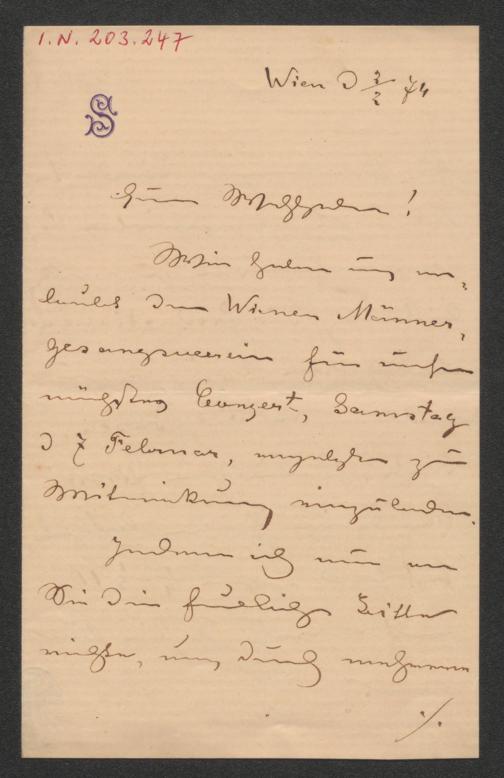 I.N. 203.247
Wien d 2/2 74
S
Euer Wohlgeboren!
Wir haben uns er-
laubt den Wiener Männer-
gesangsverein für unser
nächstes Conzert, Samstag
d 7 Februar, zur
Mitwirkung einzuladen.
Indem ich nun an
Sie die Bitte
richte, uns durch mehrere
./.